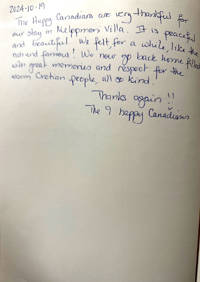 2024-10-19
The Happy Canadians are very thankful for
our stay in Villa. It is peaceful
and beautiful We felt, for a while, like the
rich and famous! We now go back home filled
with great memories and respect for the
warm Cretan people, all so kind
Thanks again !!
The 9 happy Canadians